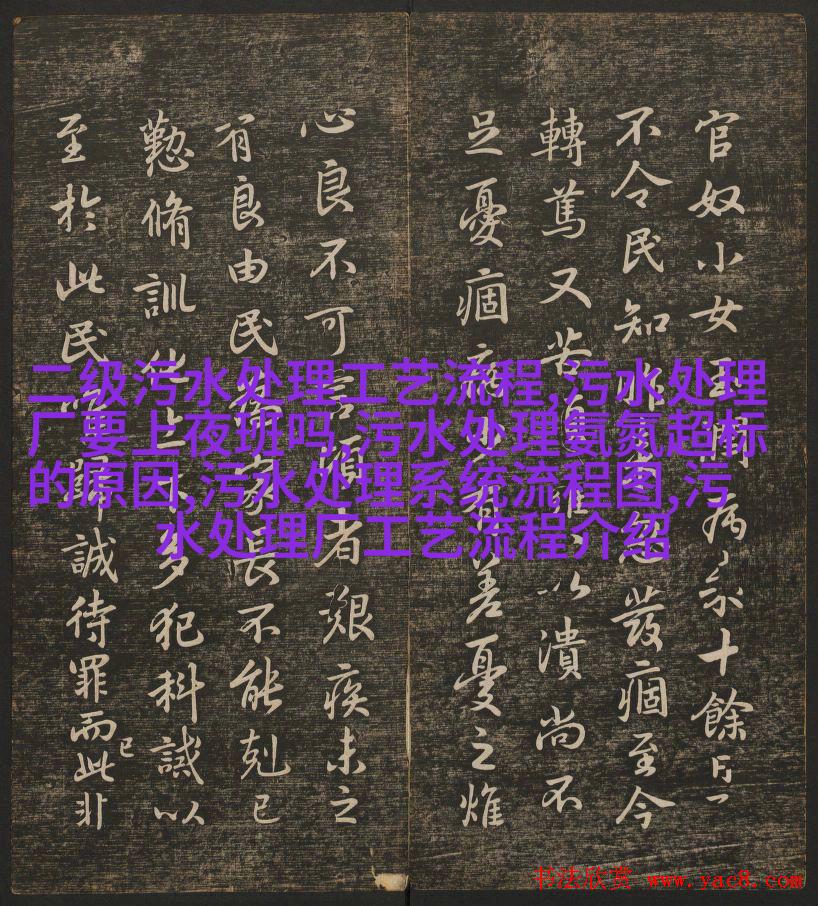 二级污水处理工艺流程,污水处理
厂要上夜班吗,污水处理氨氮超标
的原因,污水处理系统流程图,污
水处理厂工艺流程介绍
官奴小女玉潤病來十餘日了
不令民知昨來忽發痼至今
轉篤又苦頭癰以潰尚不
足憂痼病少有差憂之燋
心良不可言頃者艱疾未之
有良由民為家長不能剋己
懃脩訓化上下多犯科誡以
至於此民唯歸誠待罪而此非
书法欣赏 www.yac8.com